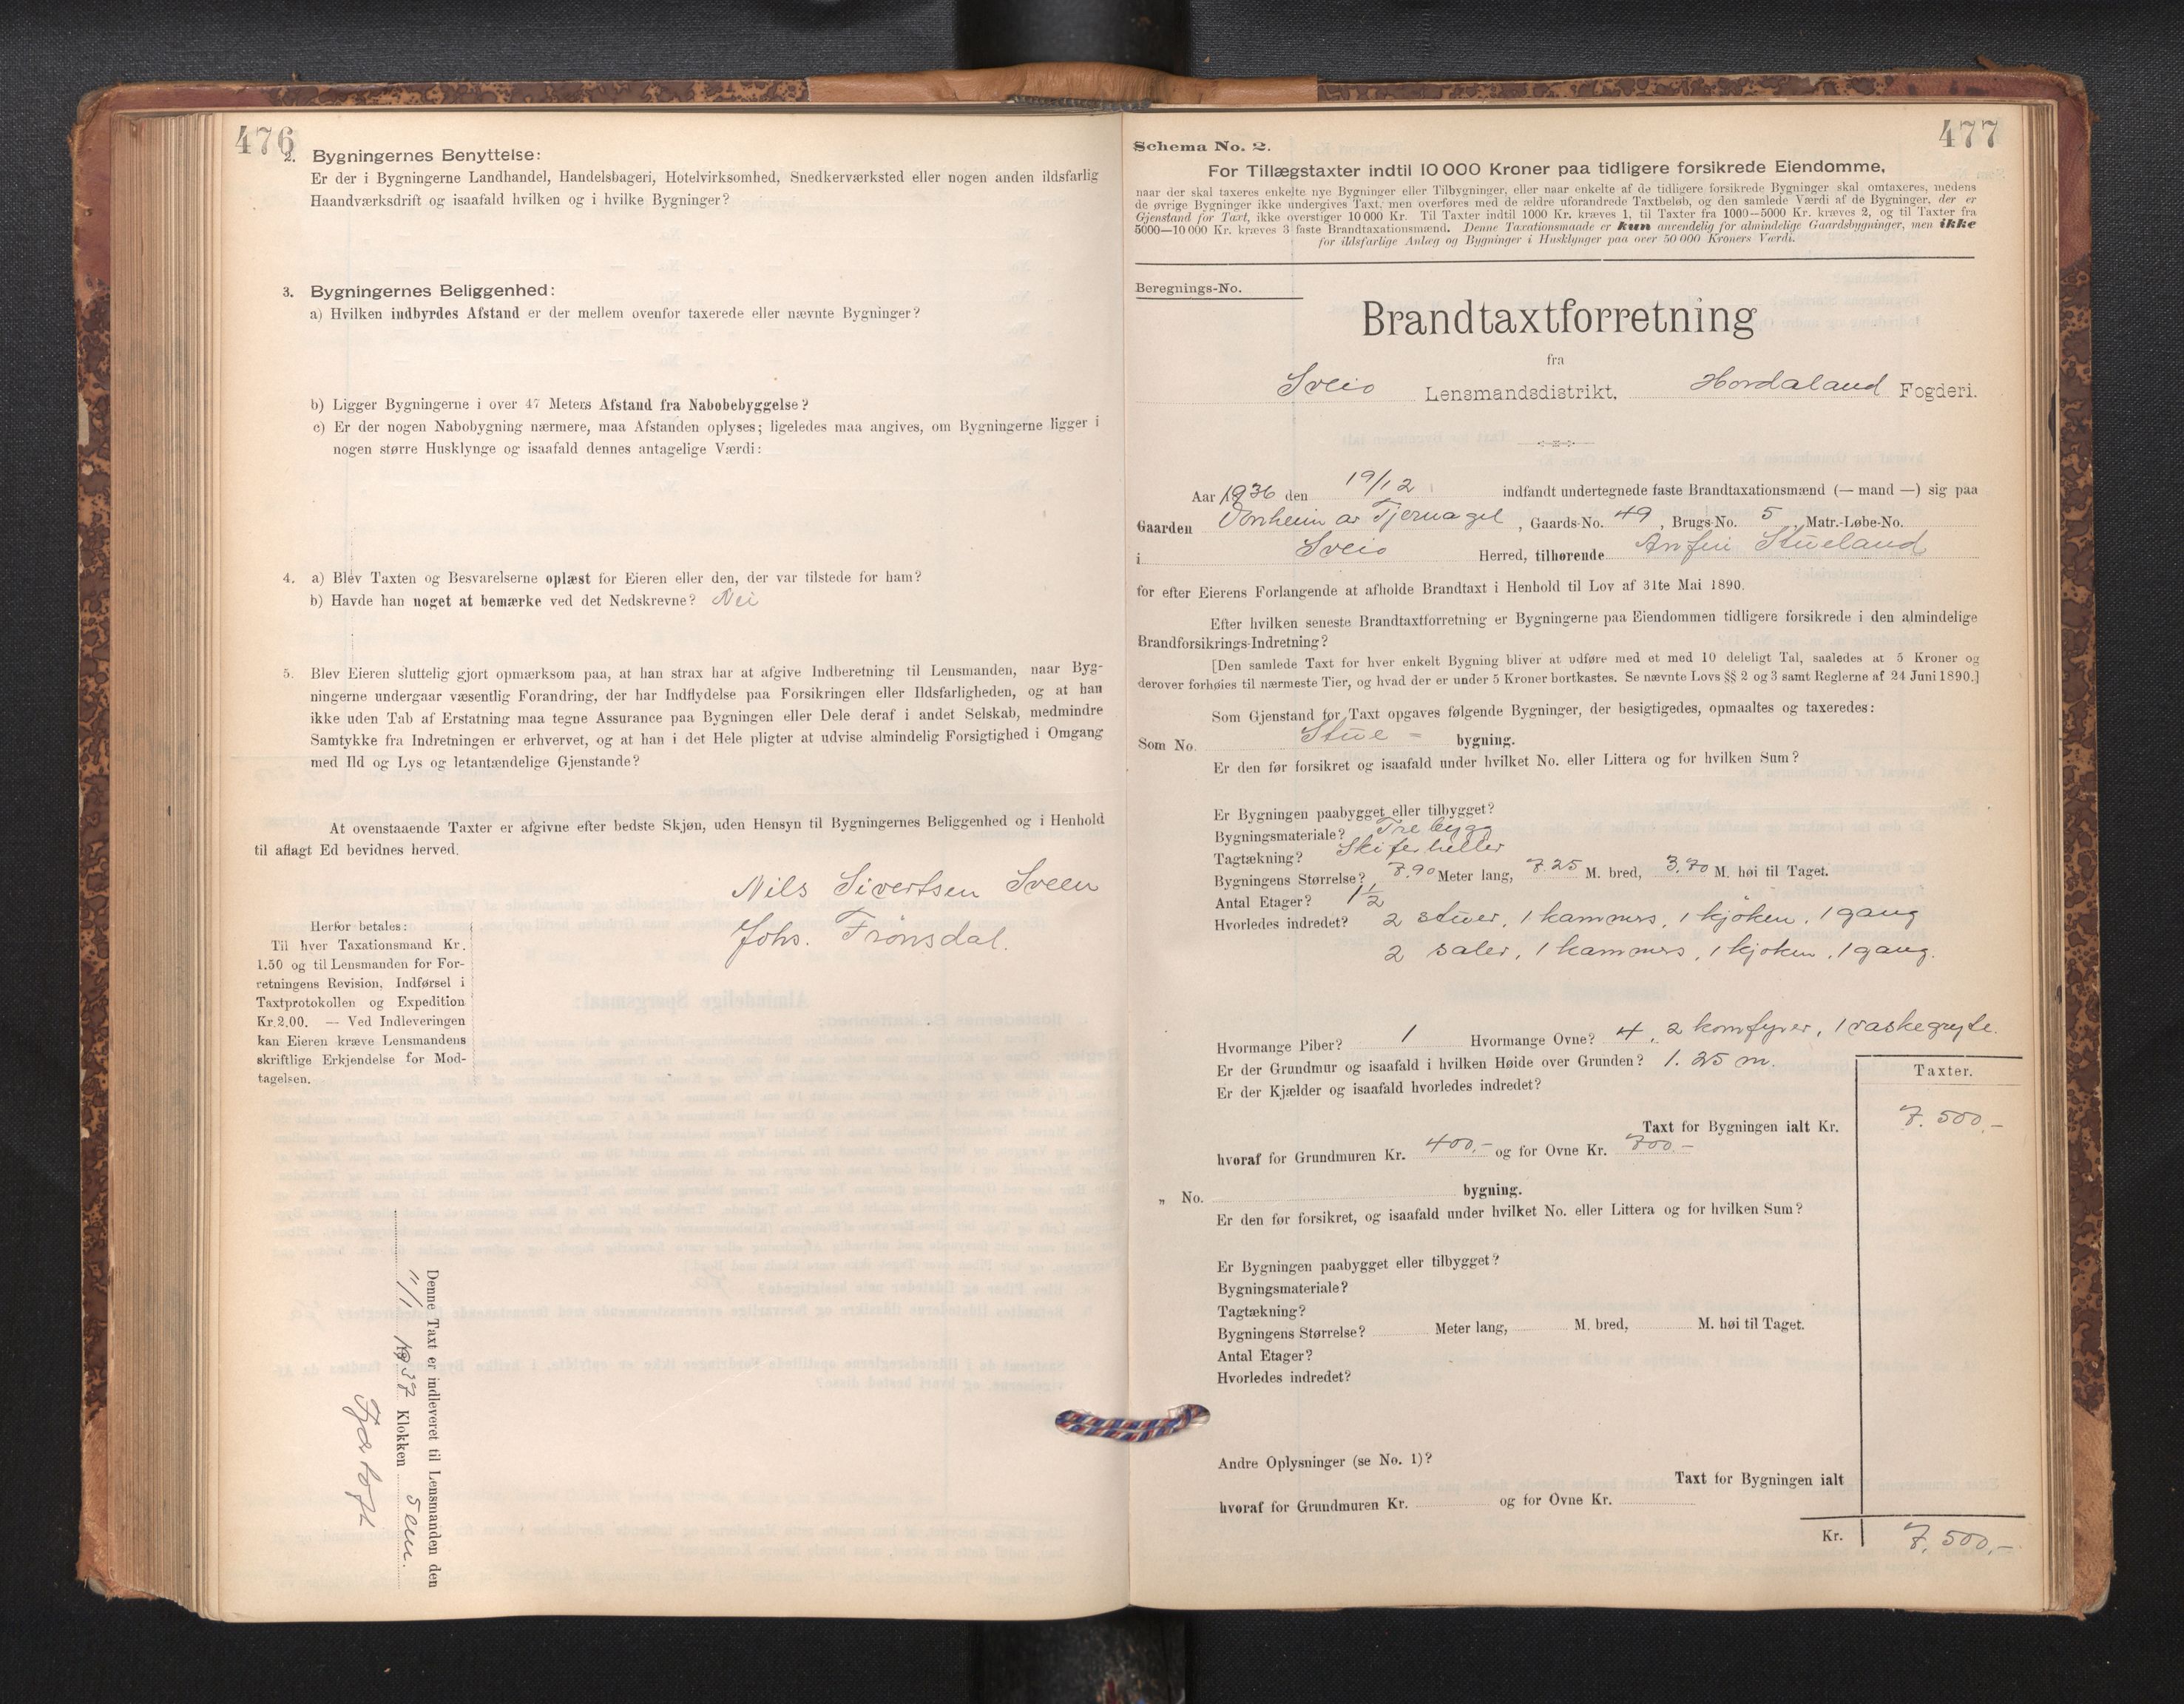 476
2. Bygningernes Benyttelse:
Er der i Bygningerne Landhandel, Handelsbageri, Hotelvirksomhed, Snedkerværksted eller nogen anden ildsfarlig
Haandværksdrift og isaafald hvilken og i hvilke Bygninger?
3. Bygningernes Beliggenhed:
a) Hvilken indbyrdes Afstand er der mellem ovenfor taxerede eller nævnte Bygninger?
b) Ligger Bygningerne i over 47 Meters Afstand fra Nabobebyggelse?
c) Er der nogen Nabobygning nærmere, maa Afstanden oplyses; ligeledes maa angives, om Bygningerne ligger i
nogen større Husklynge og isaafald dennes antagelige Værdi:
4. a) Blev Taxten og Besvarelserne oplæst for Eieren eller den, der var tilstede for ham?
b) Havde han noget at bemærke ved det Nedskrevne? Nei
5. Blev Eieren sluttelig gjort opmærksom paa, at han strax har at afgive Indberetning til Lensmanden, naar Byg-
ningerne undergaar væsentlig Forandring, der har Indflydelse paa Forsikringen eller Ildsfarligheden, og at han
ikke uden Tab af Erstatning maa tegne Assurance paa Bygningen eller Dele deraf i andet Selskab, medmindre
Samtykke fra Indretningen er erhvervet, og at han i det Hele pligter at udvise almindelig Forsigtighed i Omgang
med Ild og Lys og letantændelige Gjenstande?
At ovenstaaende Taxter er afgivne efter bedste Skjøn, uden Hensyn til Bygningernes Beliggenhed og i Henhold
til aflagt Ed bevidnes herved.
Nils Sivertsen Sveen
Johs. Frønsdal.
Herfor betales:
Til hver Taxationsmand Kr.
1.50 og til Lensmanden for For-
retningens Revision, Indførsel i
Taxtprotokollen og Expedition
Kr. 2.00. — Ved Indleveringen
kan Eieren kræve Lensmandens
skriftlige Erkjendelse for Mod-
tagelsen.
Denne Taxt er indleveret til Lensmanden den
11/1 1937 Klokken 5 em.
477
Schema No. 2.
For Tillægstaxter indtil 10 000 Kroner paa tidligere forsikrede Eiendomme,
naar der skal taxeres enkelte nye Bygninger eller Tilbygninger, eller naar enkelte af de tidligere forsikrede Bygninger skal omtaxeres, medens
de øvrige Bygninger ikke undergives Taxt, men overføres med de ældre uforandrede Taxtbeløb, og den samlede Værdi af de Bygninger, der er
Gjenstand for Taxt, ikke overstiger 10 000 Kr. Til Taxter indtil 1000 Kr. kræves 1, til Taxter fra 1000—5000 Kr. kræves 2, og til Taxter fra
5000—10 000 Kr. kræves 3 faste Brandtaxationsmænd. Denne Taxationsmaade er kun anvendelig for almindelige Gaardsbygninger, men ikke
for ildsfarlige Anlæg og Bygninger i Husklynger paa over 50 000 Kroners Værdi.
Beregnings-No.
Brandtaxtforretning
fra
Sveio Lensmandsdistrikt, Hordaland Fogderi.
Aar 1936 den 19/12 indfandt undertegnede faste Brandtaxationsmænd (— mand —) sig paa
Gaarden Vonheim av Tjernagel, Gaards-No. 49, Brugs-No. 5, Matr.-Løbe-No.
i Sveio Herred, tilhørende Anfin Stueland
for efter Eierens Forlangende at afholde Brandtaxt i Henhold til Lov af 31te Mai 1890.
Efter hvilken seneste Brandtaxtforretning er Bygningerne paa Eiendommen tidligere forsikrede i den almindelige
Brandforsikrings-Indretning?
[Den samlede Taxt for hver enkelt Bygning bliver at udføre med et med 10 deleligt Tal, saaledes at 5 Kroner og
derover forhøies til nærmeste Tier, og hvad der er under 5 Kroner bortkastes. Se nævnte Lovs §§ 2 og 3 samt Reglerne af 24 Juni 1890.]
Som Gjenstand for Taxt opgaves følgende Bygninger, der besigtigedes, opmaaltes og taxeredes:
Som No. Stue - bygning.
Er den før forsikret og isaafald under hvilket No. eller Littera og for hvilken Sum?
Er Bygningen paabygget eller tilbygget?
Bygningsmateriale? Trebygg
Tagtækning? Skiferheller
Bygningens Størrelse? 7.90 Meter lang, 7.25 M. bred, 3,70 M. høi til Taget.
Antal Etager? 1 1/2
Hvorledes indredet? 2 stuer, 1 kammers, 1 kjøken, 1 gang
2 saler, 1 kammers, 1 kjøken, 1 gang.
Hvormange Piber? 1 Hvormange Ovne? 4, 2 komfyrer, 1 vaskegryte.
Er der Grundmur og isaafald i hvilken Høide over Grunden? 1.25 m.
Er der Kjælder og isaafald hvorledes indredet?
Taxter.
Taxt for Bygningen ialt Kr. 7.500,-
hvoraf for Grundmuren Kr. 400,- og for Ovne Kr. 700.-
„ No. bygning.
Er den før forsikret, og isaafald under hvilket No. eller Littera og for hvilken Sum?
Er Bygningen paabygget eller tilbygget?
Bygningsmateriale?
Tagtækning?
Bygningens Størrelse? Meter lang, M. bred, M. høi til Taget.
Antal Etager?
Hvorledes indredet?
Andre Oplysninger (se No. 1)?
Taxt for Bygningen ialt
hvoraf for Grundmuren Kr. og for Ovne Kr.
Kr. 7.500,-